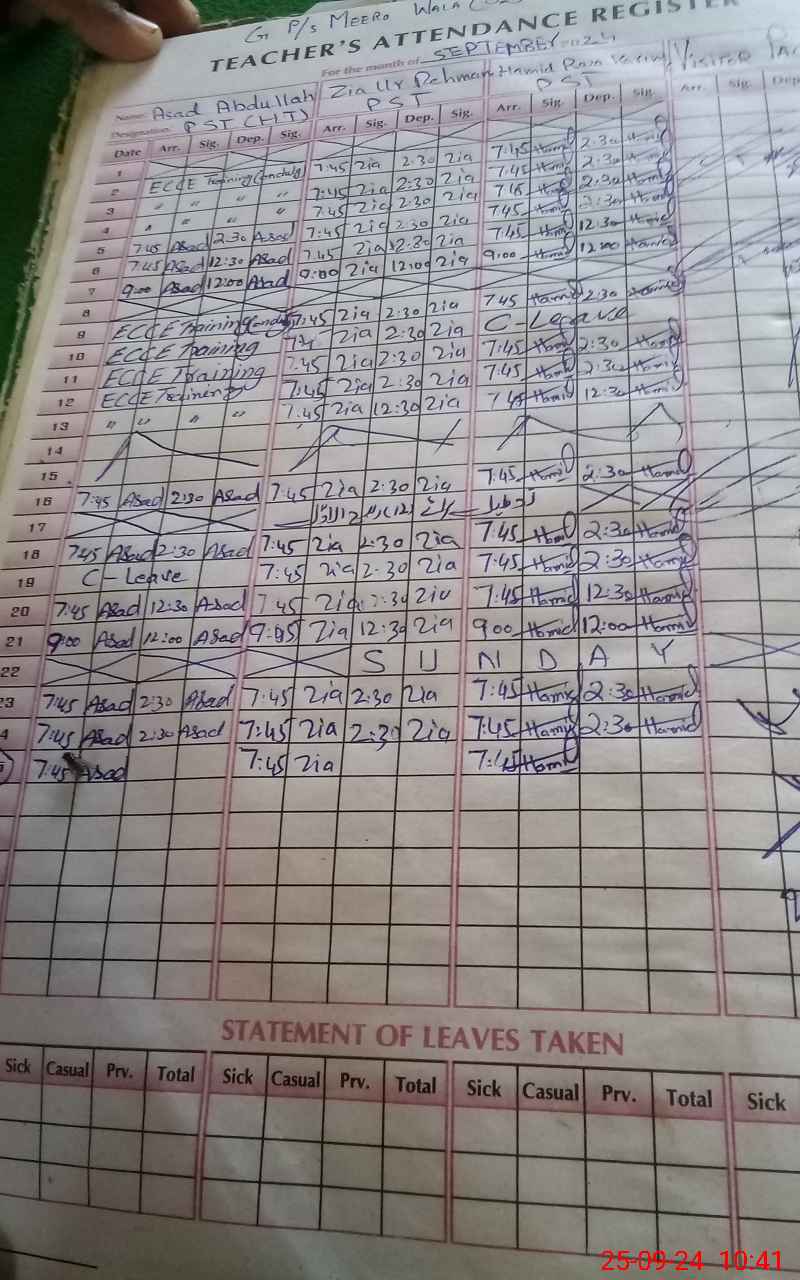 G P/S MEERO WALA
TEACHER'S ATTENDANCE REGISTER
For the month of SEPTEMBER
Name Asad Abdullah Zia Ur Rehman Hamid Raza VISITED
Designation PST (HT) PST PST
Date Arr. Sig. Dep. Sig. Arr. Sig. Dep. Sig. Arr. Sig. Dep. Sig. Arr. Sig. Dep
1
2 ECCE Training 7:45 Zia 2:30 Zia 7:45 Hamid 2:30 Hamid
3 " " " " 7:45 Zia 2:30 Zia 7:45 Hamid 2:30 Hamid
4 " " " " 7:45 Zia 2:30 Zia Hamid 2:30 Hamid
5 7:45 Asad 2:30 Asad 7:45 Zia 2:30 Zia 7:45 Hamid 2:30 Hamid
6 7:45 Asad 12:30 Asad 7:45 Zia 12:30 Zia 7:45 Hamid 12:30 Hamid
7 9:00 Asad 12:00 Asad 9:00 Zia 12:00 Zia 9:00 Hamid 12:00 Hamid
8
9 ECCE Training 7:45 Zia 2:30 Zia 7:45 Hamid 2:30 Hamid
10 ECCE Training Zia 2:30 Zia C-Leave
11 ECCE Training 7:45 Zia 2:30 Zia 7:45 Hamid 2:30 Hamid
12 ECCE 7:45 Zia 2:30 Zia 7:45 Hamid 2:30 Hamid
13 " " " " 7:45 Zia 12:30 Zia 7:45 Hamid 12:30 Hamid
14
15
16 7:45 Asad 2:30 Asad 7:45 Zia 2:30 Zia 7:45 Hamid 2:30 Hamid
17
18 7:45 Asad 2:30 Asad 7:45 Zia 2:30 Zia 7:45 Hamid 2:30 Hamid
19 C-Leave 7:45 Zia 2:30 Zia 7:45 Hamid 2:30 Hamid
20 7:45 Asad 12:30 Asad 7:45 Zia Zia 7:45 Hamid 12:30 Hamid
21 9:00 Asad 12:00 Asad Zia 12:30 Zia 9:00 Hamid 12:00 Hamid
22 S U N D A Y
23 7:45 Asad 2:30 Asad 7:45 Zia 2:30 Zia 7:45 Hamid 2:30 Hamid
4 7:45 Asad 2:30 Asad 7:45 Zia 2:30 Zia 7:45 Hamid 2:30 Hamid
7:45 Asad 7:45 Zia 7:45 Hamid
STATEMENT OF LEAVES TAKEN
Sick Casual Prv. Total Sick Casual Prv. Total Sick Casual Prv. Total Sick
25-09-24 10:41